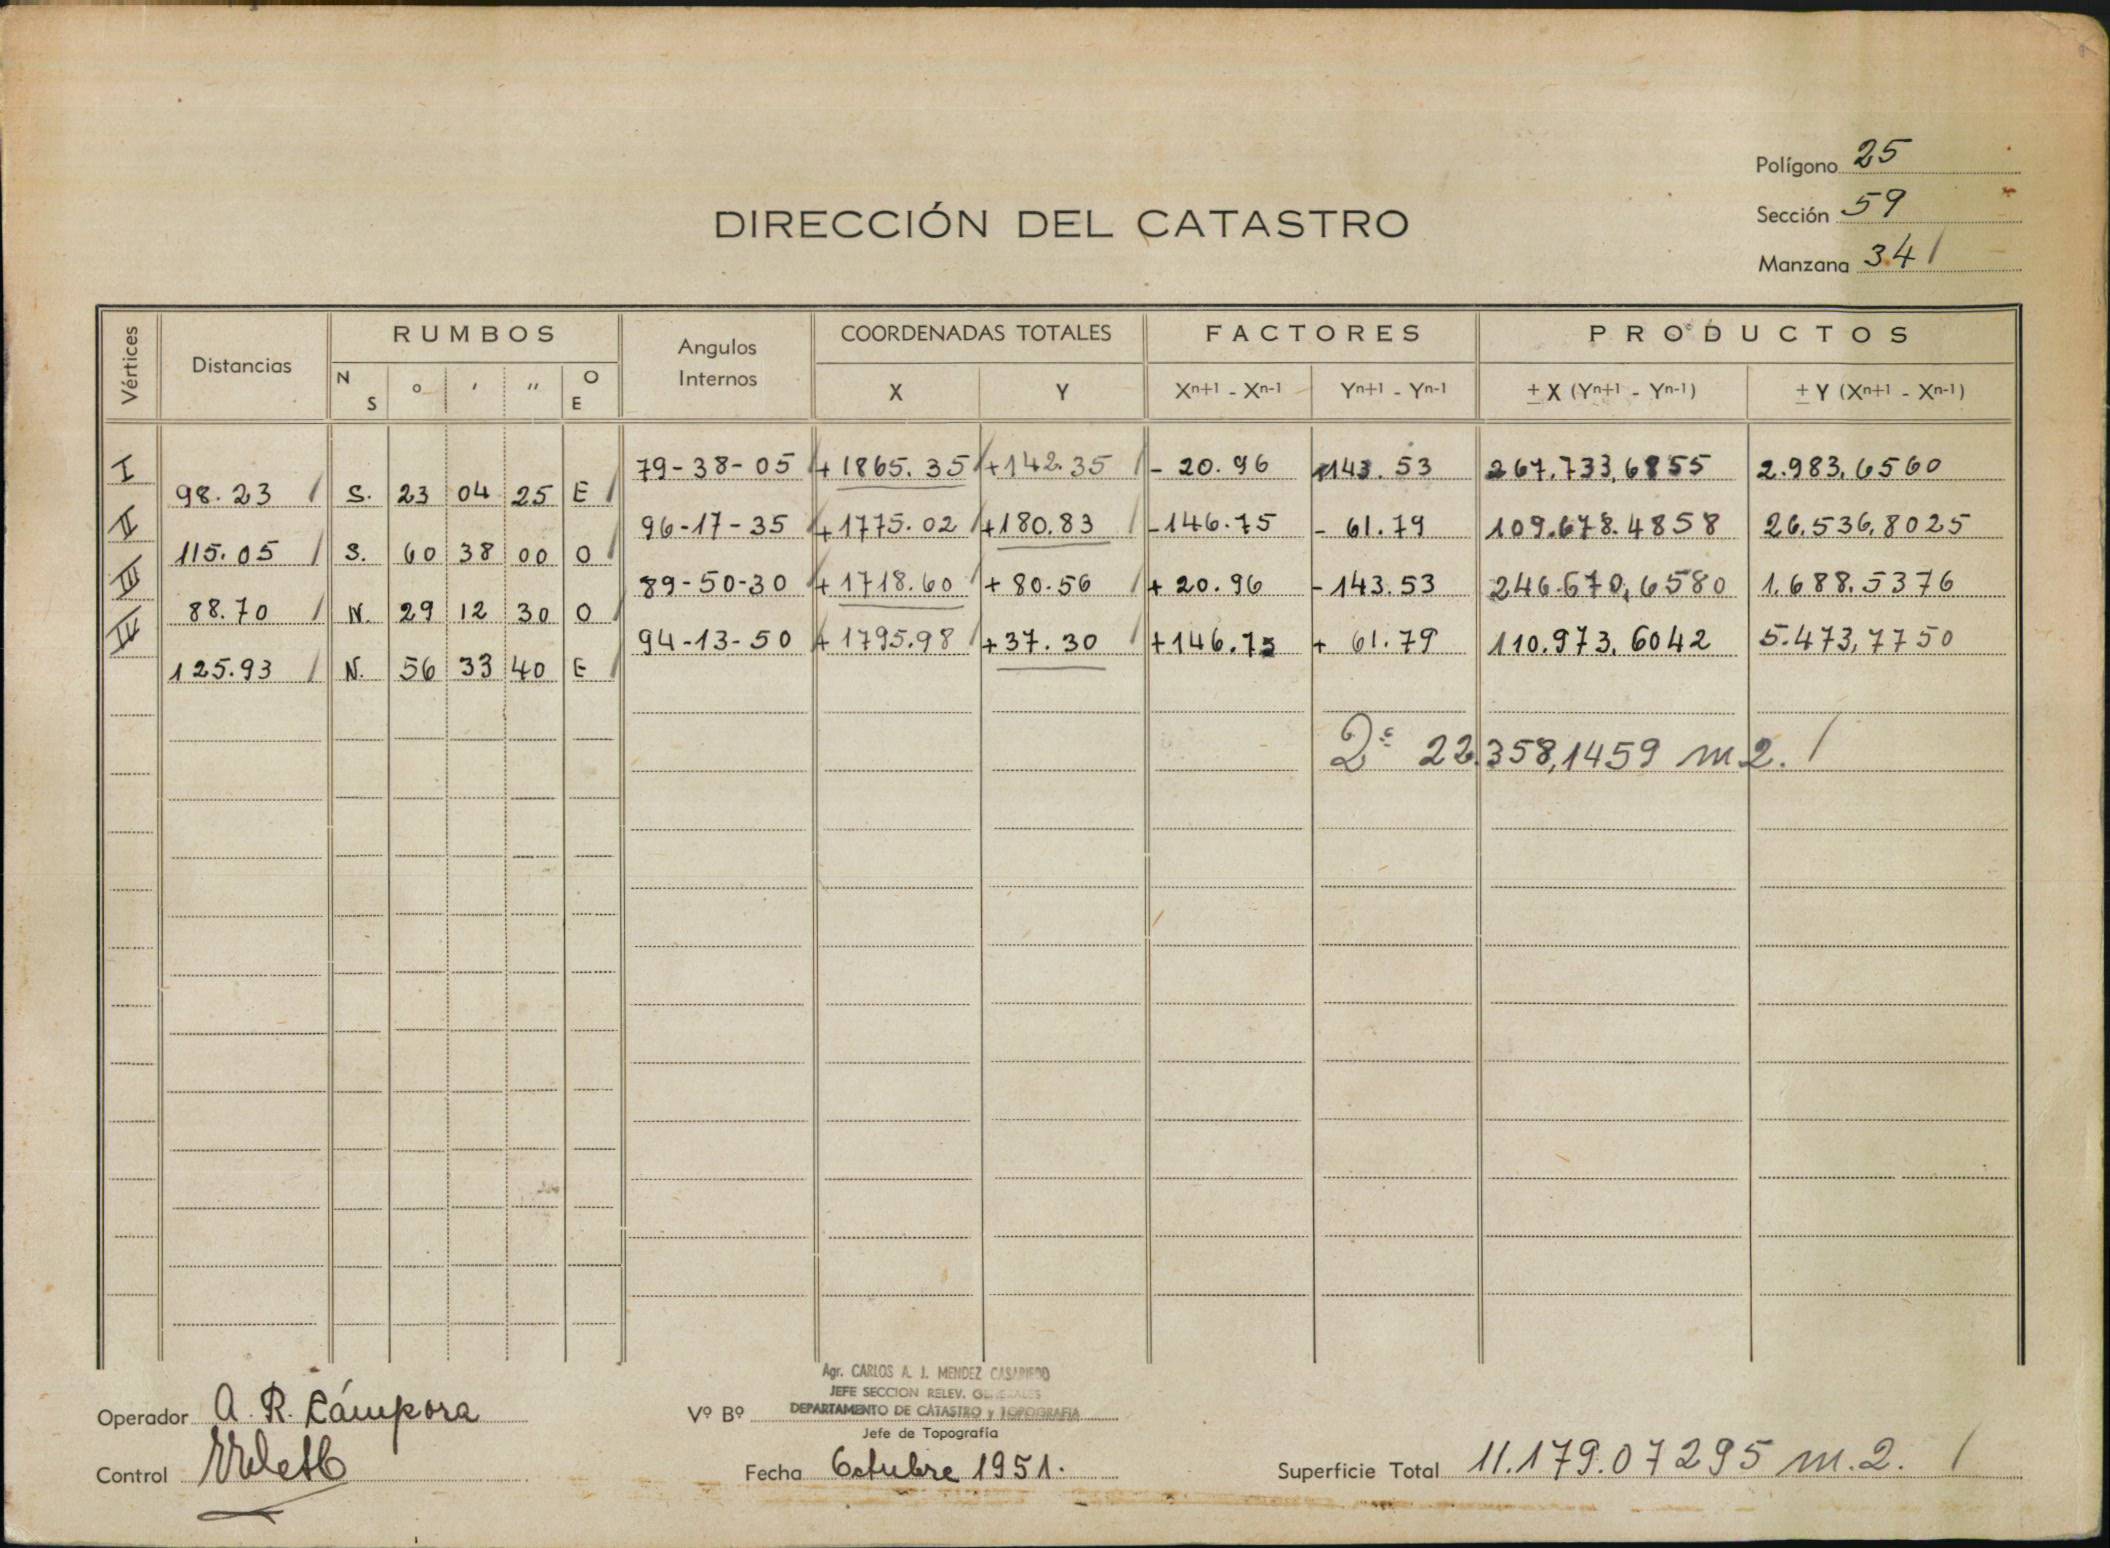 Polígono 25
Sección 59
Manzana 34
DIRECCIÓN DEL CATASTRO
Vértices Distancias RUMBOS Angulos Internos COORDENADAS TOTALES FACTORES PRODUCTOS
N S ° ' '' O E X Y Xn+1 - Xn-1 Yn+1 - Yn-1 ± X (Yn+1 - Yn-1) ± Y (Xn+1 - Xn-1)
I 79-38-05 +1865.35 +142.35 - 20.96 143.53 267.733,6855 2.983,6560
98.23 S. 23 04 25 E
II 96-17-35 +1775.02 +180.83 -146.75 - 61.79 109.678.4858 26.536,8025
115.05 S. 60 38 00 O
III 89-50-30 +1718.60 + 80.56 + 20.96 -143.53 246.670,6580 1.688.5376
88.70 N. 29 12 30 O
IV 94-13-50 + 1795.98 +37.30 +146.75 + 61.79 110.973.6042 5.473,7750
125.93 N. 56 33 40 E
22.358,1459 m2.
Agr. CARLOS A. J. MENDEZ CASARIEGO
JEFE SECCION RELEV. GENERALES
DEPARTAMENTO DE CATASTRO y TOPOGRAFIA
Operador A. R. Cámpora Vº Bº
Jefe de Topografía
Control Fecha Octubre 1951. Superficie Total 11.179.07295 m.2.